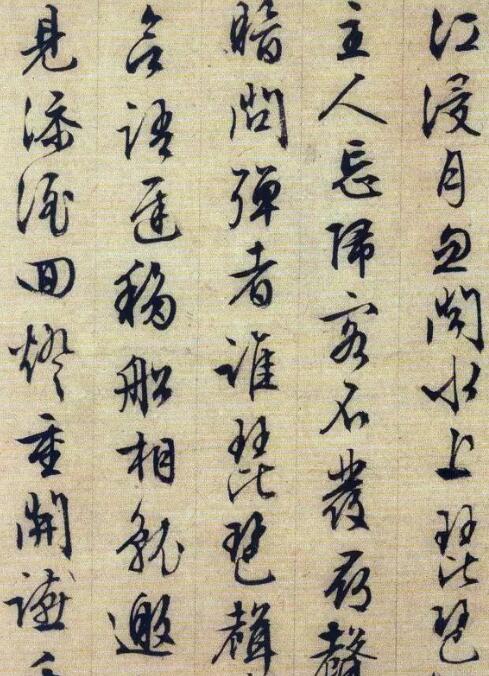 江浸月忽聞水上琵琶
主人忘歸客不發尋聲
暗問彈者誰琵琶聲
語遲移船相就邀
見添酒回燈重開讌